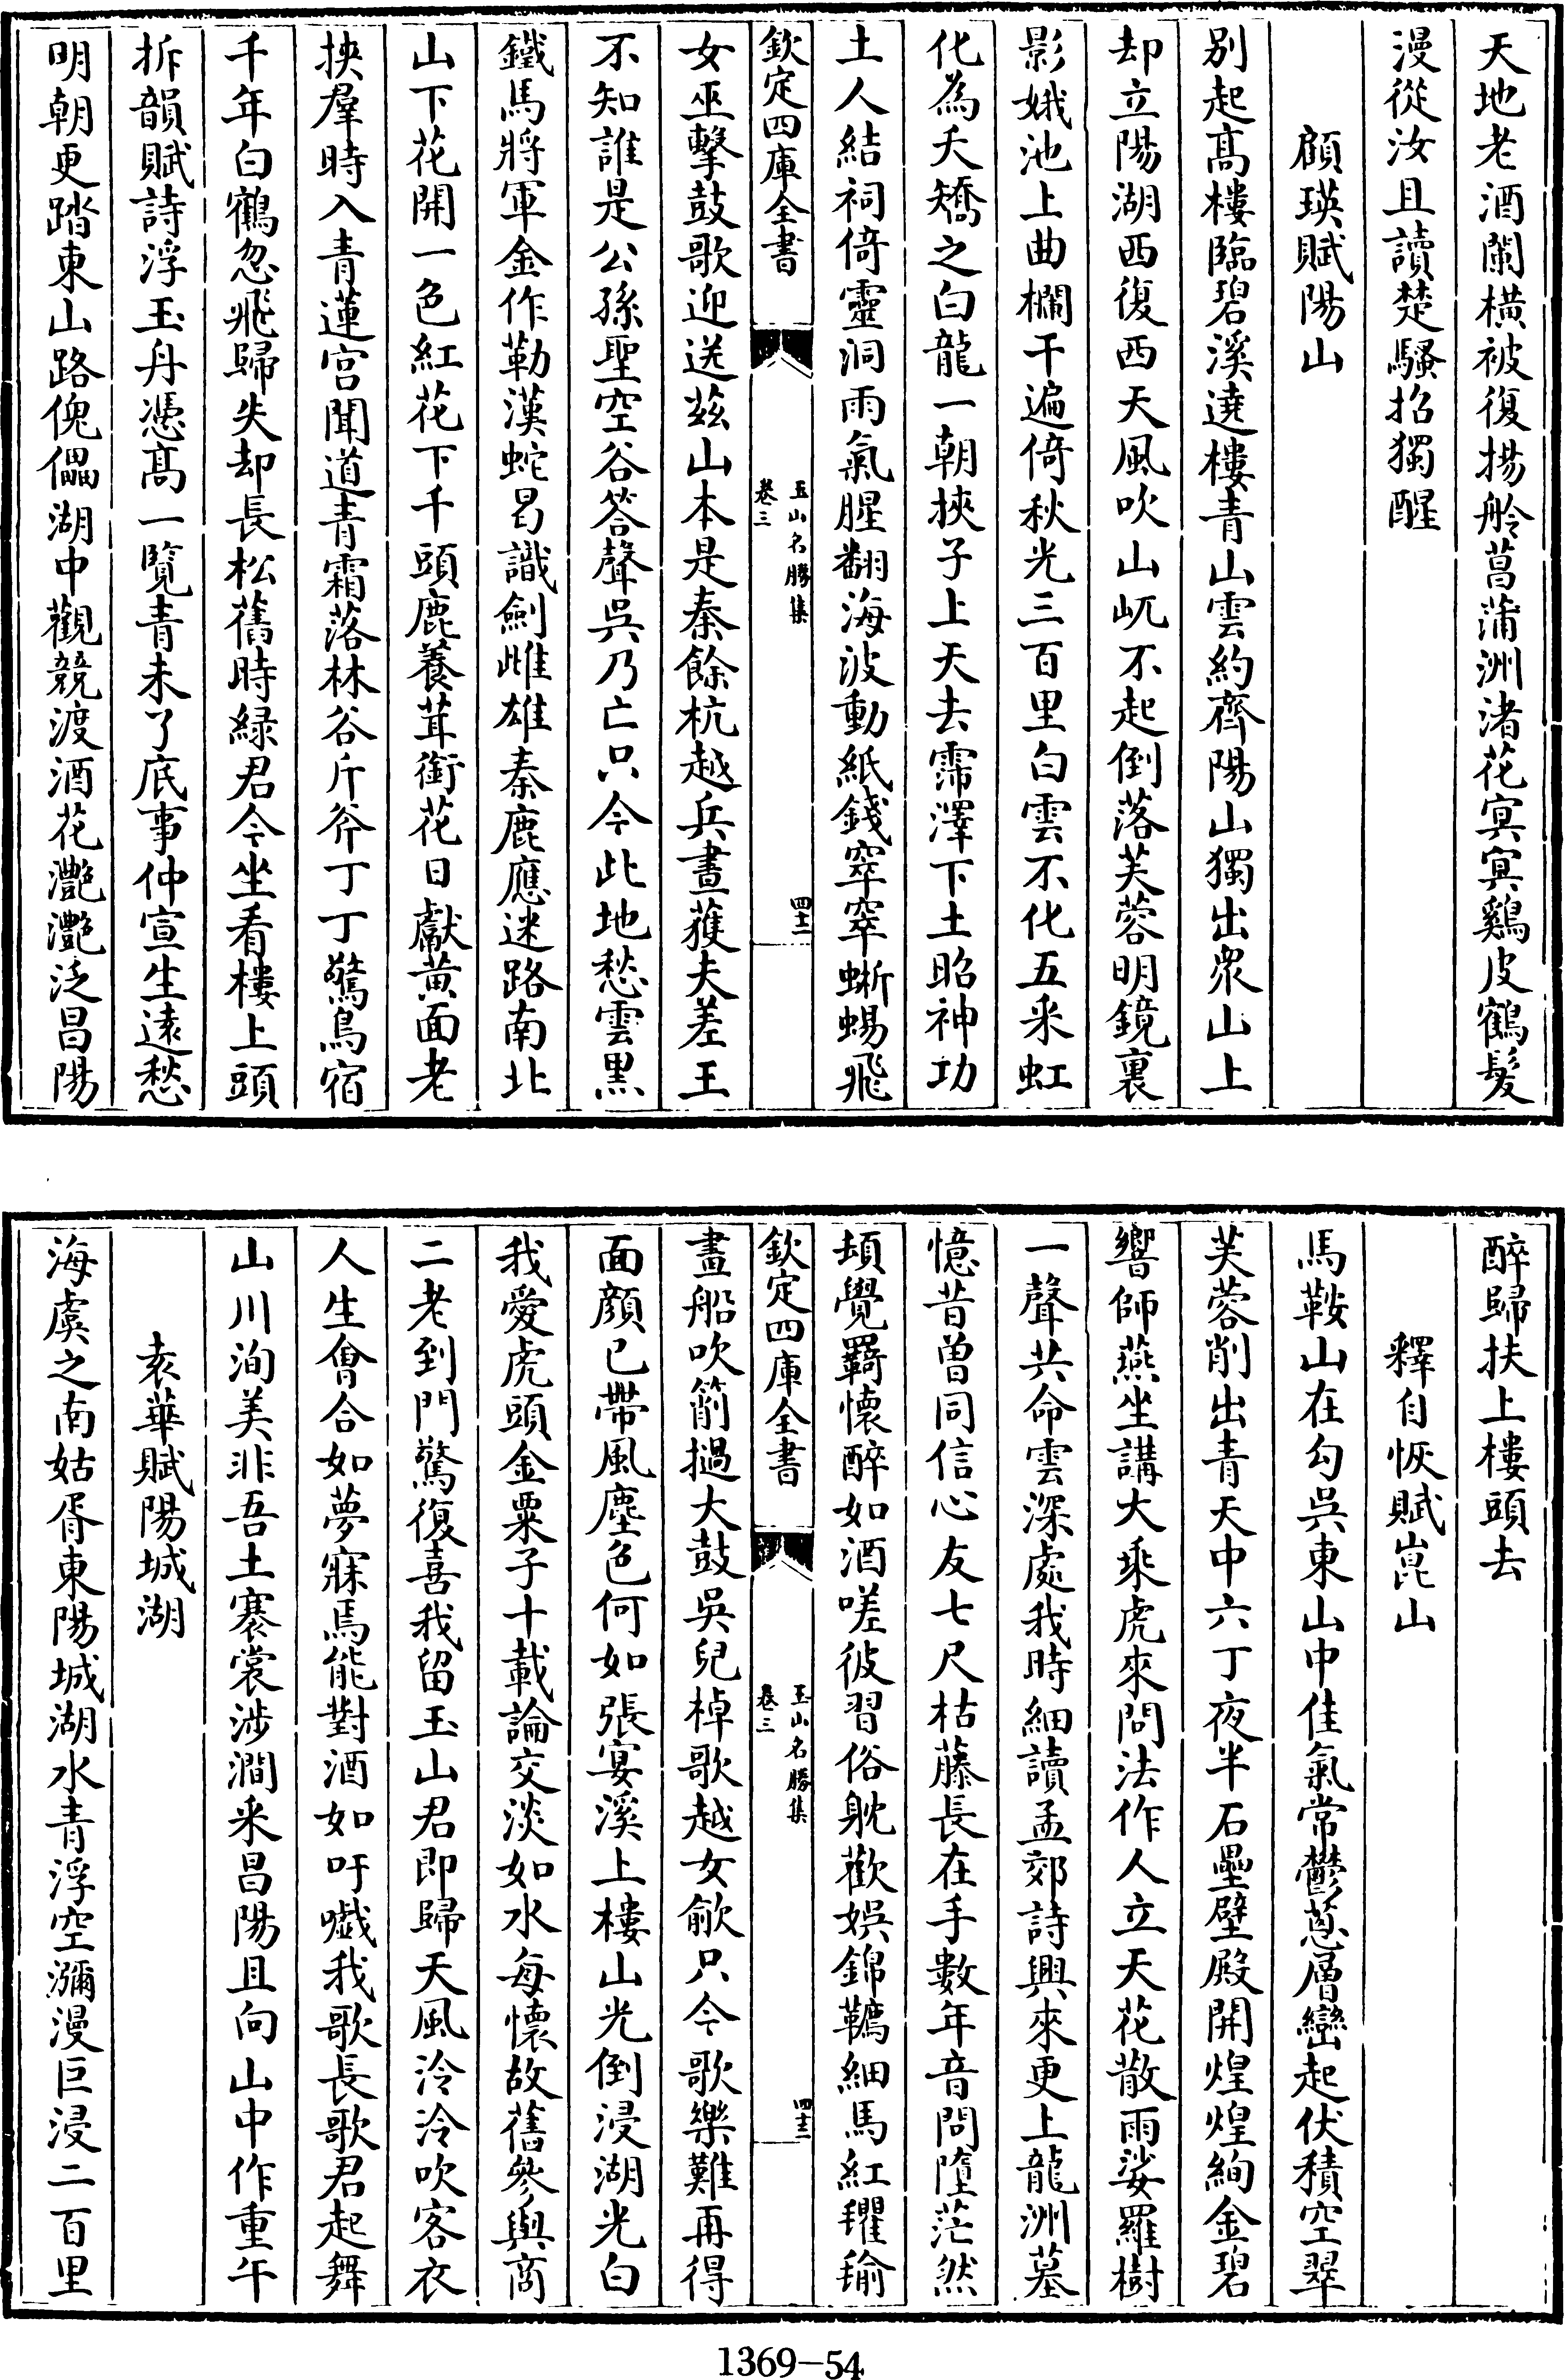 天地老酒闌橫被復揚舲菖蒲洲渚花冥冥鷄皮鶴髪
漫從汝且讀楚騷招獨醒
顧瑛賦陽山
别起髙樓臨碧溪遶樓青山雲約齊陽山獨出衆山上
却立陽湖西復西天風吹山屼不起倒落芙蓉明鏡裏
影娥池上曲欄干遍倚秋光三百里白雲不化五采虹
化為夭矯之白龍一朝挾子上天去霈澤下土昭神功
土人結祠倚靈洞雨氣腥翻海波動紙錢窣窣蜥蜴飛
欽定四庫全書
玉山名勝集
卷三
四十二
女巫擊鼓歌迎送兹山本是秦餘杭越兵晝獲夫差王
不知誰是公孫聖空谷答聲吳乃亡只今此地愁雲黒
鐵馬將軍金作勒漢蛇曷識劍雌雄秦鹿應迷路南北
山下花開一色紅花下千頭鹿養茸銜花日獻黄面老
挾羣時入青蓮宫聞道青霜落林谷斤斧丁丁驚鳥宿
千年白鶴忽飛歸失却長松舊時緑君今坐看樓上頭
拆韻賦詩浮玉舟憑髙一覽青未了底事仲宣生遠愁
明朝更踏東山路傀儡湖中觀競渡酒花灔灔泛昌陽
醉歸扶上樓頭去
釋自恢賦崑山
馬鞍山在勾吳東山中佳氣常鬱葱層巒起伏積空翠
芙蓉削出青天中六丁夜半石壘壁殿開煌煌絢金碧
響師燕坐講大乘虎來問法作人立天花散雨娑羅樹
一聲共命雲深處我時細讀孟郊詩興來更上龍洲墓
憶昔曽同信心友七尺枯藤長在手數年音問墮茫然
頓覺羇懷醉如酒嗟彼習俗躭歡娯錦韉細馬紅氍毹
欽定四庫全書
玉山名勝集
卷三
四十三
畫船吹簫撾大鼓吳兒棹歌越女歈只今歌樂難再得
面顔已帶風塵色何如張宴溪上樓山光倒浸湖光白
我愛虎頭金粟子十載論交淡如水每懷故舊參與商
二老到門驚復喜我留玉山君即歸天風泠泠吹客衣
人生會合如夢寐焉能對酒如吁嚱我歌長歌君起舞
山川洵美非吾土褰裳涉澗采昌陽且向山中作重午
袁華賦陽城湖
海虞之南姑胥東陽城湖水青浮空瀰漫巨浸二百里
1369—54